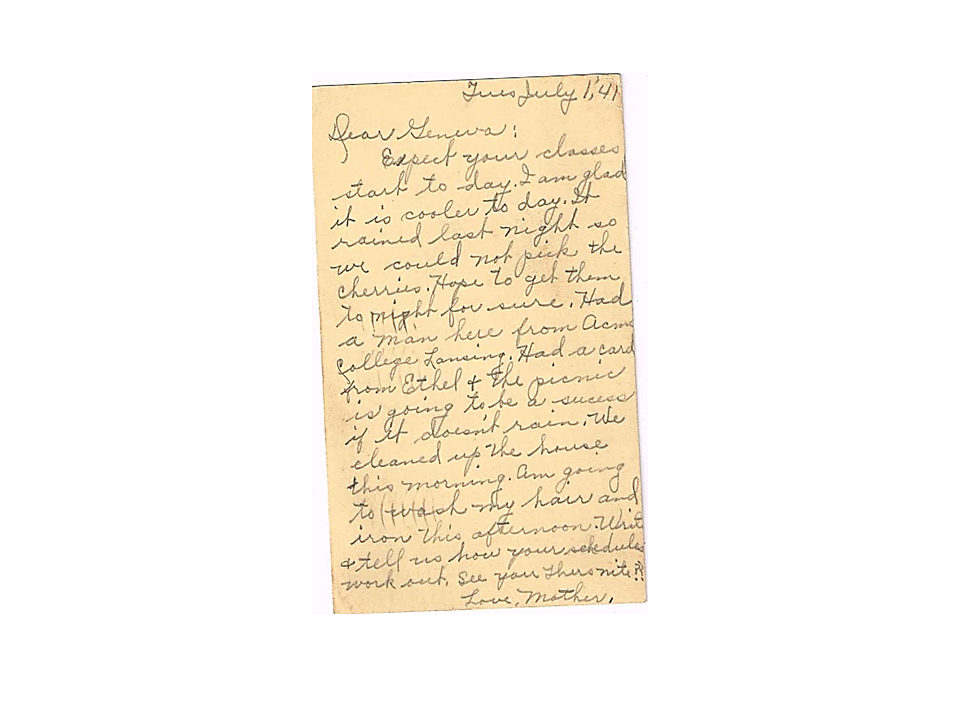 Tues July 1, '41
Dear Geneva:
Expect your classes
start to day. I am glad
it is cooler to day. It
rained last night so
we could not pick the
cherries. Hope to get them
to night for sure. Had
a man here from Acme
College Lansing. Had a card
from Ethel & the picnic
is going to be a sucess
if it doesn't rain. We
cleaned up the house
this morning. Am going
to wash my hair and
iron this afternoon. Write
& tell us how your schedules
work out. See you Thurs nite
Love, Mother.